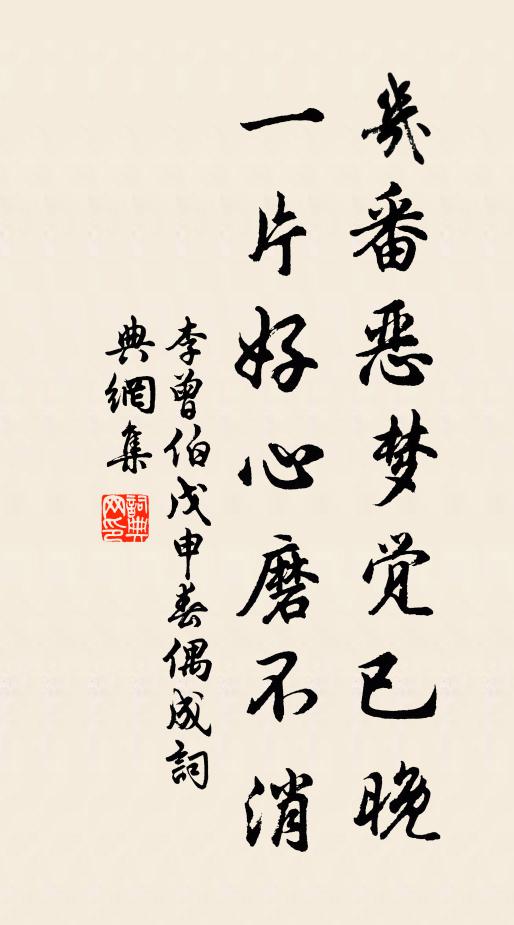 幾番恶梦觉已晚
一片好心磨不消
李曾伯戊申春偶成詞
典網集
詞典网印